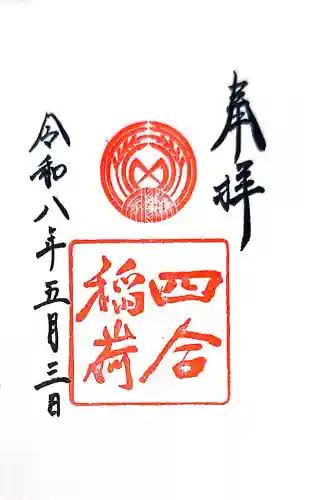 奉拝
四合
稲荷
令和八年五月三日